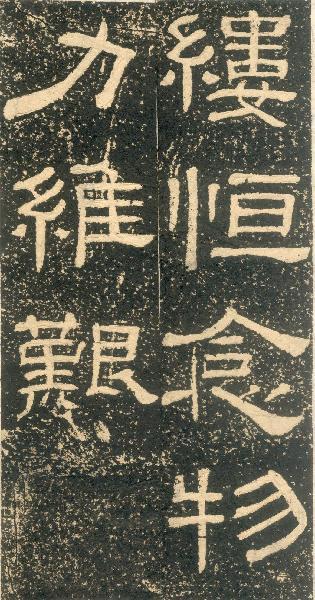 縷恒念物
力維艱